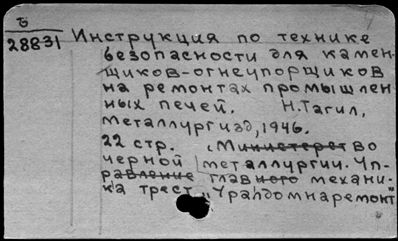 Ъ
28831 Инструкция по технике
безопасности для камен-
щиков-огнеупорщиков
на ремонтах промышлен
ных печей. Н.Тагил,
Металлургизд, 1946.
22 стр. (Министерство
черной металлургии. Уп-
равление главного механи-
ка трест "Уралдомнаремонт